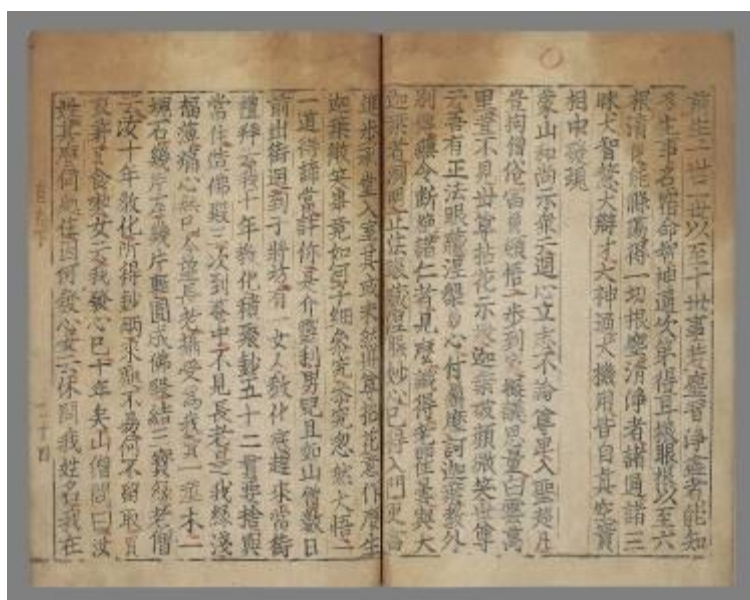 前生二世三世以至十世事若塵習淨盡者能知
多生事名宿命智神通次第得耳根眼根以至六
根清淨能勝萬得一切根塵清淨者諸通諸三
昧大智慧大辯才大神通大機用皆自真空實
相中發現
蒙山和尚示衆云道心立志不論尊卑入聖超凡
豈拘僧俗宿頓悟一步到家擬議思量白雲萬
里豈不見世尊拈花示衆迦葉破顏微笑世尊
云吾有正法眼藏涅槃妙心付囑摩訶迦葉敎外
別傳令斷絶諸仁者見麽識得老瞿曇與大
迦葉者洞明正法眼藏涅槃妙心已得入門更
進步升堂入室其或未然世尊拈花意作麽生
迦葉微笑畢竟如何子細參究參究忽然大悟一
一道得諦當許你是介靈利男兒且如山僧數日
前出街迴到于將坊有一女人敎化底趕來當街
禮拜云我十年敎化積聚鈔五十二貫要捨與
當住造佛殿三次到菴中不見長老是我緣淺
福薄痛心無已今望長老攝受爲我買一木一
塊石幾片瓦幾片甎圓成佛殿結三寶緣老僧
云汝十年敎化所得鈔兩來處不易何不留取買
衣食喫女云我發心已十年矣山僧問曰汝
姓甚麽何處住因何發心女云休問我姓名我在